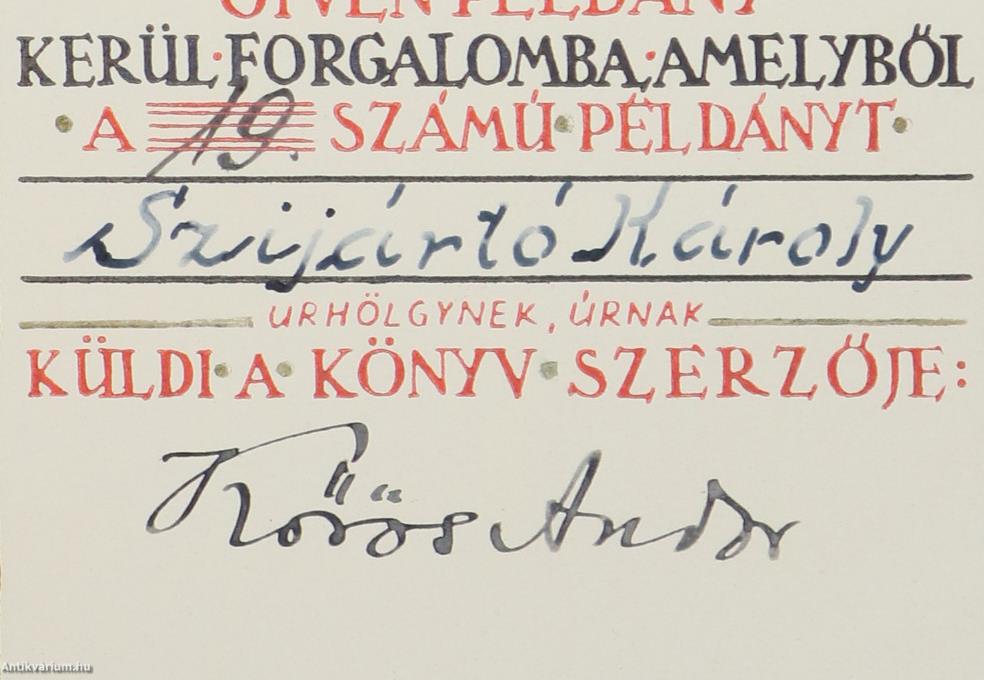 ÖTVEN PÉLDÁNY
KERÜL·FORGALOMBA·AMELYBŐL
·A 19. SZÁMÚ·PÉLDÁNYT·
Szijártó Károly
URHÖLGYNEK, ÚRNAK
KÜLDI·A·KÖNYV·SZERZŐJE:
Kőrös Andor
Antikvárium.hu